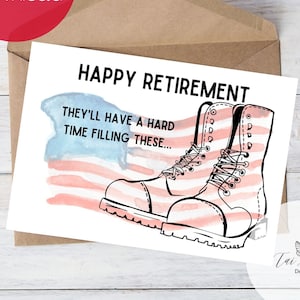 HAPPY RETIREMENT
THEY'LL HAVE A HARD
TIME FILLING THESE...